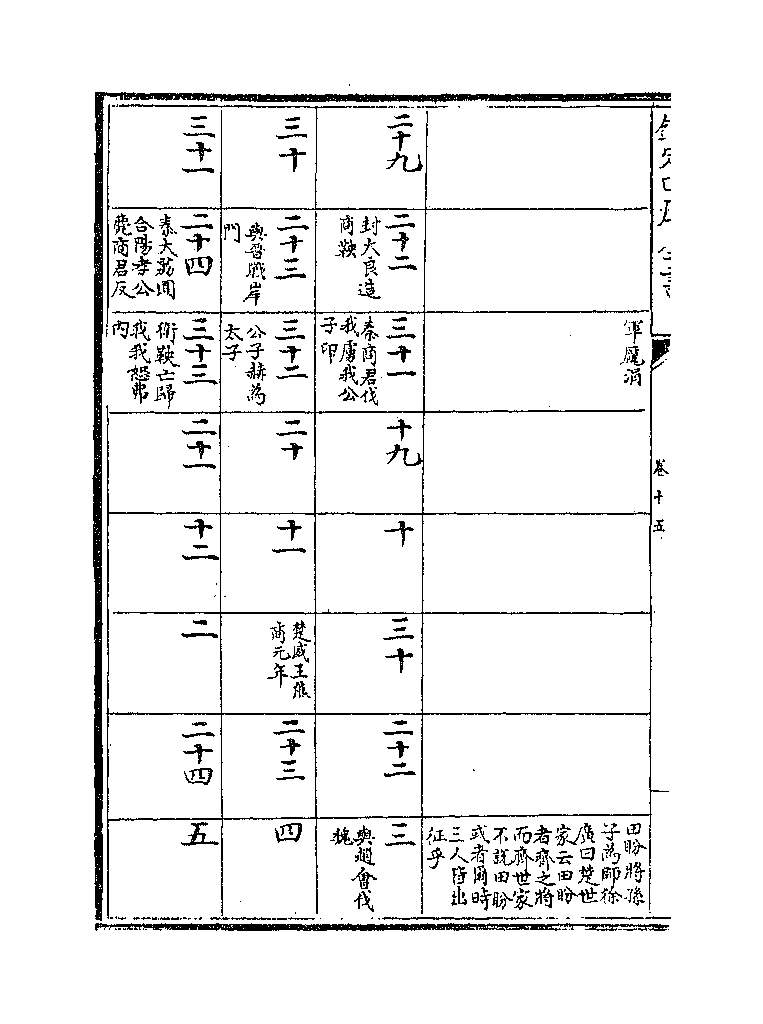 欽定四庫全書
卷十五
軍龐涓
田盼將孫
子為師徐
廣曰楚世
家云田盼
者齊之將
而齊世家
不說田盼
或者爾時
三人皆出
征乎
二十九
二十二
封大良造
商鞅
三十一
秦商君伐
我虜我公
子印
十九
十
三十
二十二
三
與趙會伐
魏
三十
二十三
與晉戰岸
門
三十二
公子赫為
太子
二十
十一
楚威王熊
商元年
二十三
四
三十一
二十四
秦大荔圍
合陽孝公
薨商君反
三十三
衛鞅亡歸
我我怒弗
內
二十一
十二
二
二十四
五